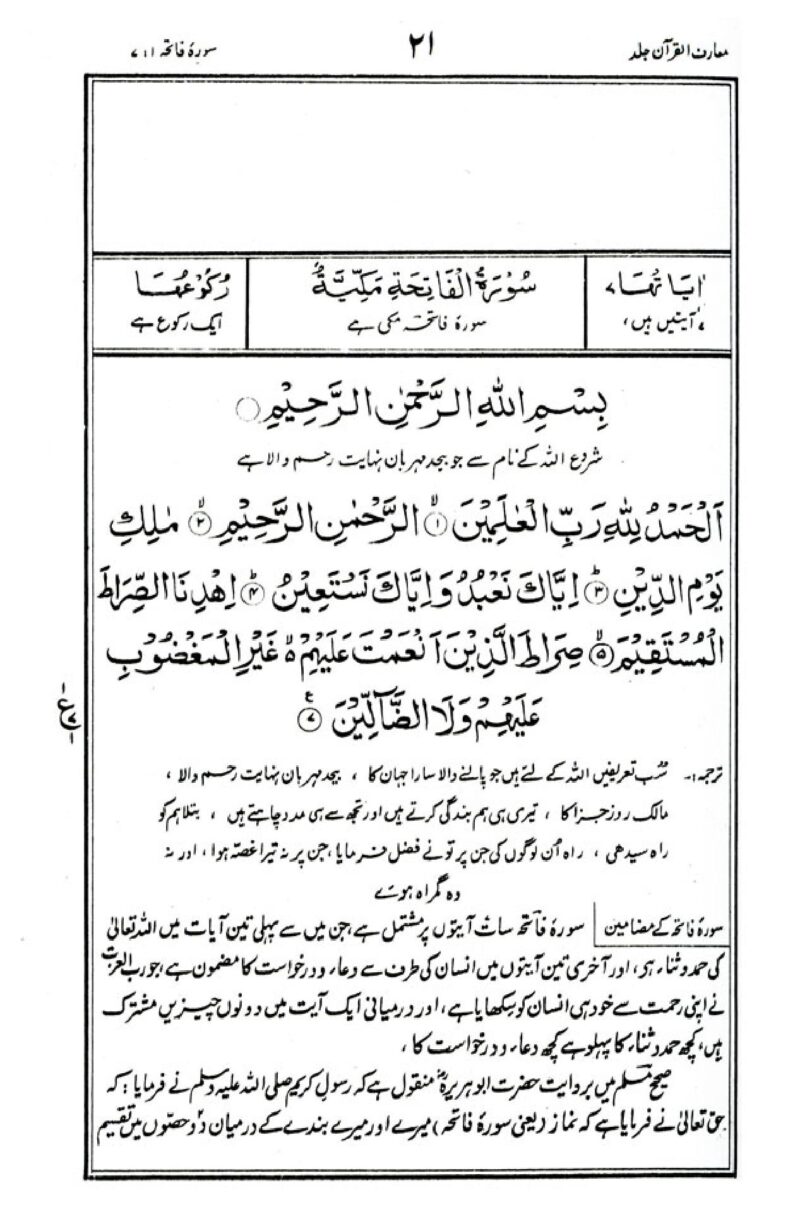 معارف القرآن جلد
۲۱
سورۂ فاتحہ ۱ : ۷
اٰيَاتُهَا ۷
سُوْرَةُ الْفَاتِحَةِ مَكِّيَّةٌ
رُكُوْعُهَا
۷ آیتیں ہیں،
سورۂ فاتحہ مکی ہے
ایک رکوع ہے
بِسْمِ اللّٰهِ الرَّحْمٰنِ الرَّحِيْمِ
شروع اللہ کے نام سے جو بیحد مہربان نہایت رحم والا ہے
اَلْحَمْدُ لِلّٰهِ رَبِّ الْعٰلَمِيْنَ ۙ۱ الرَّحْمٰنِ الرَّحِيْمِ ۙ۲ مٰلِكِ
يَوْمِ الدِّيْنِ ؕ۳ اِيَّاكَ نَعْبُدُ وَاِيَّاكَ نَسْتَعِيْنُ ؕ۴ اِهْدِنَا الصِّرَاطَ
الْمُسْتَقِيْمَ ۙ۵ صِرَاطَ الَّذِيْنَ اَنْعَمْتَ عَلَيْهِمْ ۙ۬ غَيْرِ الْمَغْضُوْبِ
عَلَيْهِمْ وَلَا الضَّآلِّيْنَ ۷
ع
۷
۱
ترجمہ :۔ سب تعریفیں اللہ کے لئے ہیں جو پالنے والا سارا جہان کا ، بیحد مہربان نہایت رحم والا ،
مالک روز جزا کا ، تیری ہی ہم بندگی کرتے ہیں اور تجھ سے ہی مدد چاہتے ہیں ، بتلا ہم کو
راہ سیدھی ، راہ اُن لوگوں کی جن پر تو نے فضل فرمایا، جن پر نہ تیرا غصہ ہوا ، اور نہ
وہ گمراہ ہوئے
سورۂ فاتحہ کے مضامین
سورۂ فاتحہ سات آیتوں پر مشتمل ہے، جن میں سے پہلی تین آیات میں اللہ تعالیٰ
کی حمد و ثناء ہے، اور آخری تین آیتوں میں انسان کی طرف سے دعاء و درخواست کا مضمون ہے، جو رب العزت
نے اپنی رحمت سے خود ہی انسان کو سکھایا ہے، اور درمیانی ایک آیت میں دونوں چیزیں مشترک
ہیں، کچھ حمد و ثناء کا پہلو ہے کچھ دعاء و درخواست کا ،
صحیح مسلم میں بروایت حضرت ابوہریرہؓ منقول ہے کہ رسول کریم صلی اللہ علیہ وسلم نے فرمایا: کہ
حق تعالیٰ نے فرمایا ہے کہ نماز (یعنی سورۂ فاتحہ) میرے اور میرے بندے کے درمیان دو حصوں میں تقسیم